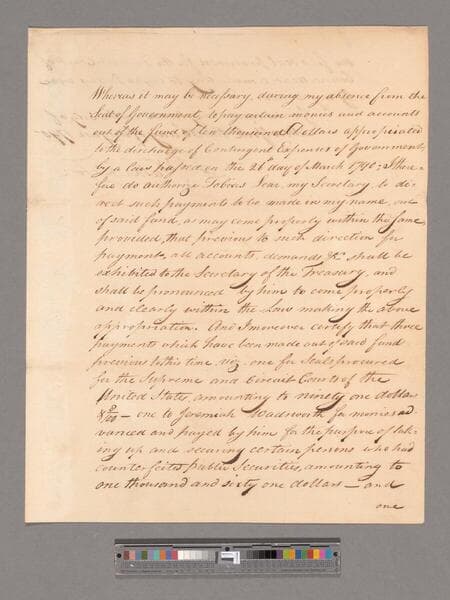 Whereas it may be necessary, during my absence from the
Seat of Government, to pay certain monies and accounts
out of the fund of ten thousand Dollars appropriated
to the discharge of Contingent Expences of Government,
by a law passed on the 26th day of March 1790: I there-
fore do authorize Tobias Lear, my Secretary, to di-
rect such payments to be made in my name out
of said fund, as may come properly within the same,
provided, that previous to such direction for
payment, all accounts, demands &c. shall be
exhibited to the Secretary of the Treasury, and
shall be pronounced by him to come properly
and clearly within the Law making the above
appropriation. And I moreover certify that three
payments which have been made out of said fund
previous to this time, viz. one for Seals procured
for the Supreme and Circuit Courts of the
United States, amounting to ninety one dollars
& /100 — one to Jeremiah Wadsworth for monies ad-
vanced and payed by him for the purpose of tak-
ing up and securing certain persons who had
counterfeited public Securities, amounting to
one thousand and sixty one dollars — and
one